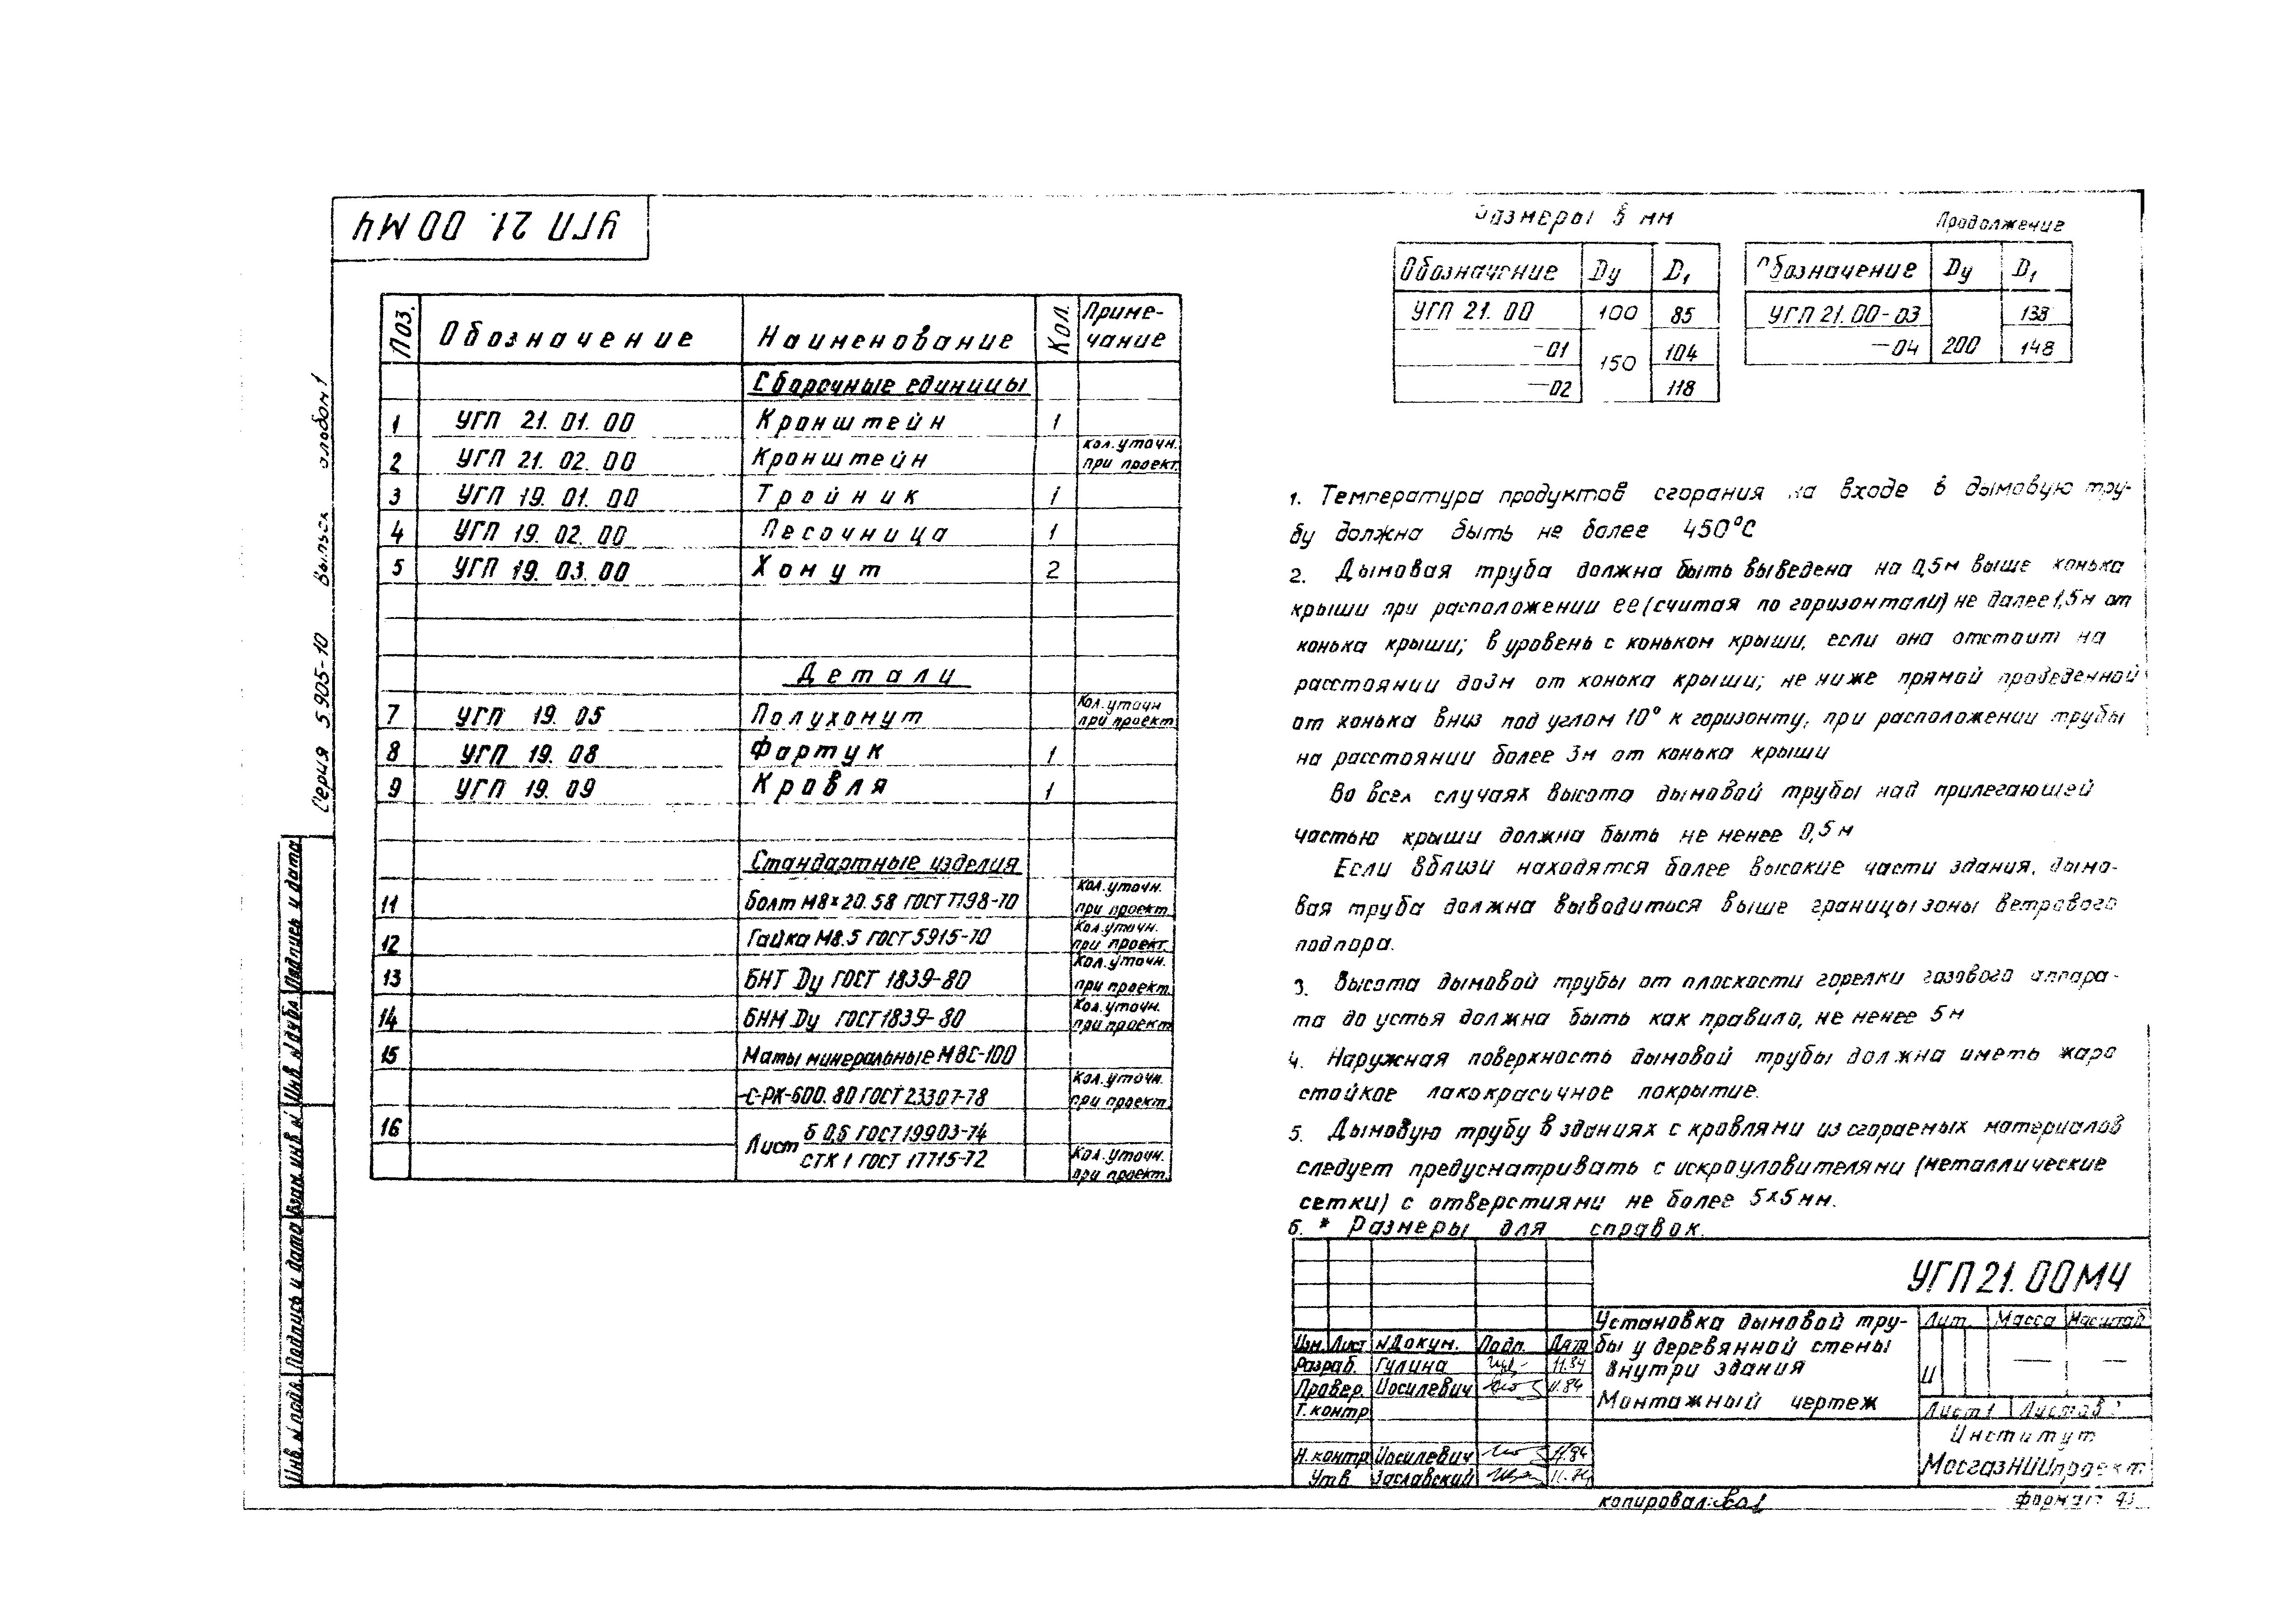 УГП 21. 00 МЧ
Серия 5 905-10 Выпуск альбом 1
Поз. Обозначение Наименование Кол. Приме-
чание
Сборочные единицы
1 УГП 21. 01. 00 Кронштейн 1
2 УГП 21. 02. 00 Кронштейн Кол. уточн.
при проект.
3 УГП 19. 01. 00 Тройник 1
4 УГП 19. 02. 00 Песочница 1
5 УГП 19. 03. 00 Хомут 2
Детали
7 УГП 19. 05 Полухомут Кол. уточн
при проект
8 УГП 19. 08 Фартук 1
9 УГП 19. 09 Кровля 1
Стандартные изделия
11 Болт М8×20.58 ГОСТ 7798-70 Кол. уточн.
при проект.
12 Гайка М8.5 ГОСТ 5915-70 Кол. уточн.
при проект.
13 БНТ Dу ГОСТ 1839-80 Кол. уточн.
при проект.
14 БНМ Dу ГОСТ 1839-80 Кол. уточн.
при проект
15 Маты минеральные МВС-100
-С-РК-600.80 ГОСТ 23307-78 Кол. уточн.
при проект.
16 Лист б 0,6 ГОСТ 19903-74
СТК 1 ГОСТ 17715-72 Кол. уточн.
при проект.
Размеры в мм
Обозначение Dу D1
УГП 21. 00 100 85
-01 150 104
-02 118
Продолжение
Обозначение Dу D1
УГП 21.00-03 200 138
-04 148
1. Температура продуктов сгорания на входе в дымовую тру-
бу должна быть не более 450°С
2. Дымовая труба должна быть выведена на 0,5м выше конька
крыши при расположении ее (считая по горизонтали) не далее 1,5м от
конька крыши; в уровень с коньком крыши, если она отстоит на
расстоянии до 3м от конька крыши; не ниже прямой проведенной
от конька вниз под углом 10° к горизонту, при расположении трубы
на расстоянии более 3м от конька крыши
Во всех случаях высота дымовой трубы над прилегающей
частью крыши должна быть не менее 0,5м
Если вблизи находятся более высокие части здания, дымо-
вая труба должна выводиться выше границы зоны ветрового
подпора.
3. Высота дымовой трубы от плоскости горелки газового аппара-
та до устья должна быть как правило, не менее 5м
4. Наружная поверхность дымовой трубы должна иметь жаро
стойкое лакокрасочное покрытие.
5. Дымовую трубу в зданиях с кровлями из сгораемых материалов
следует предусматривать с искроуловителями (металлические
сетки) с отверстиями не более 5×5мм.
6. * Размеры для справок.
УГП 21. 00 МЧ
Изм. Лист N докум. Подп. Дата
Разраб. Гулина 11.84
Провер. Иосилевич 11.84
Т. контр
Н. контр Иосилевич 11.84
Утв Заславский
Установка дымовой тру-
бы у деревянной стены
внутри здания
Монтажный чертеж
Лит. Масса Масштаб
И — —
Лист 1 Листов
Институт
МосгазНИИпроект
копировал:
формат
Инв. N подл. Подпись и дата Взам. инв. N Инв. N дубл. Подпись и дата